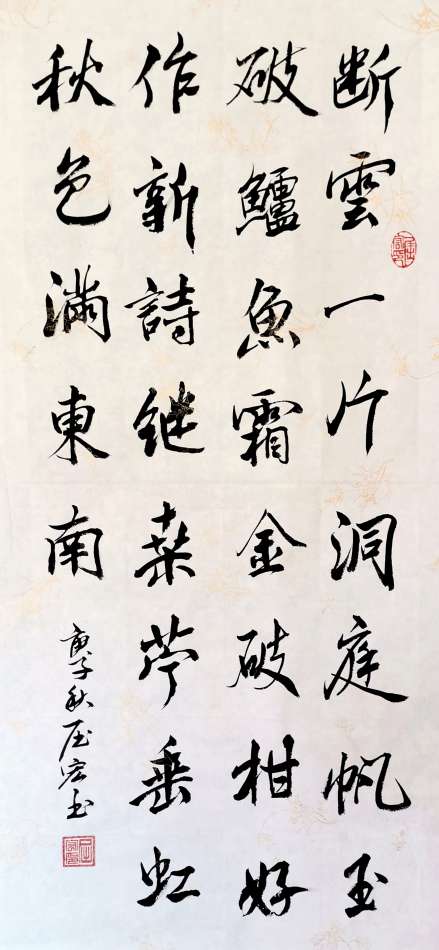 断雲一片洞庭帆玉
破鱸魚霜金破柑好
作新詩继桑苧垂虹
秋色滿東南
庚子秋宏玉